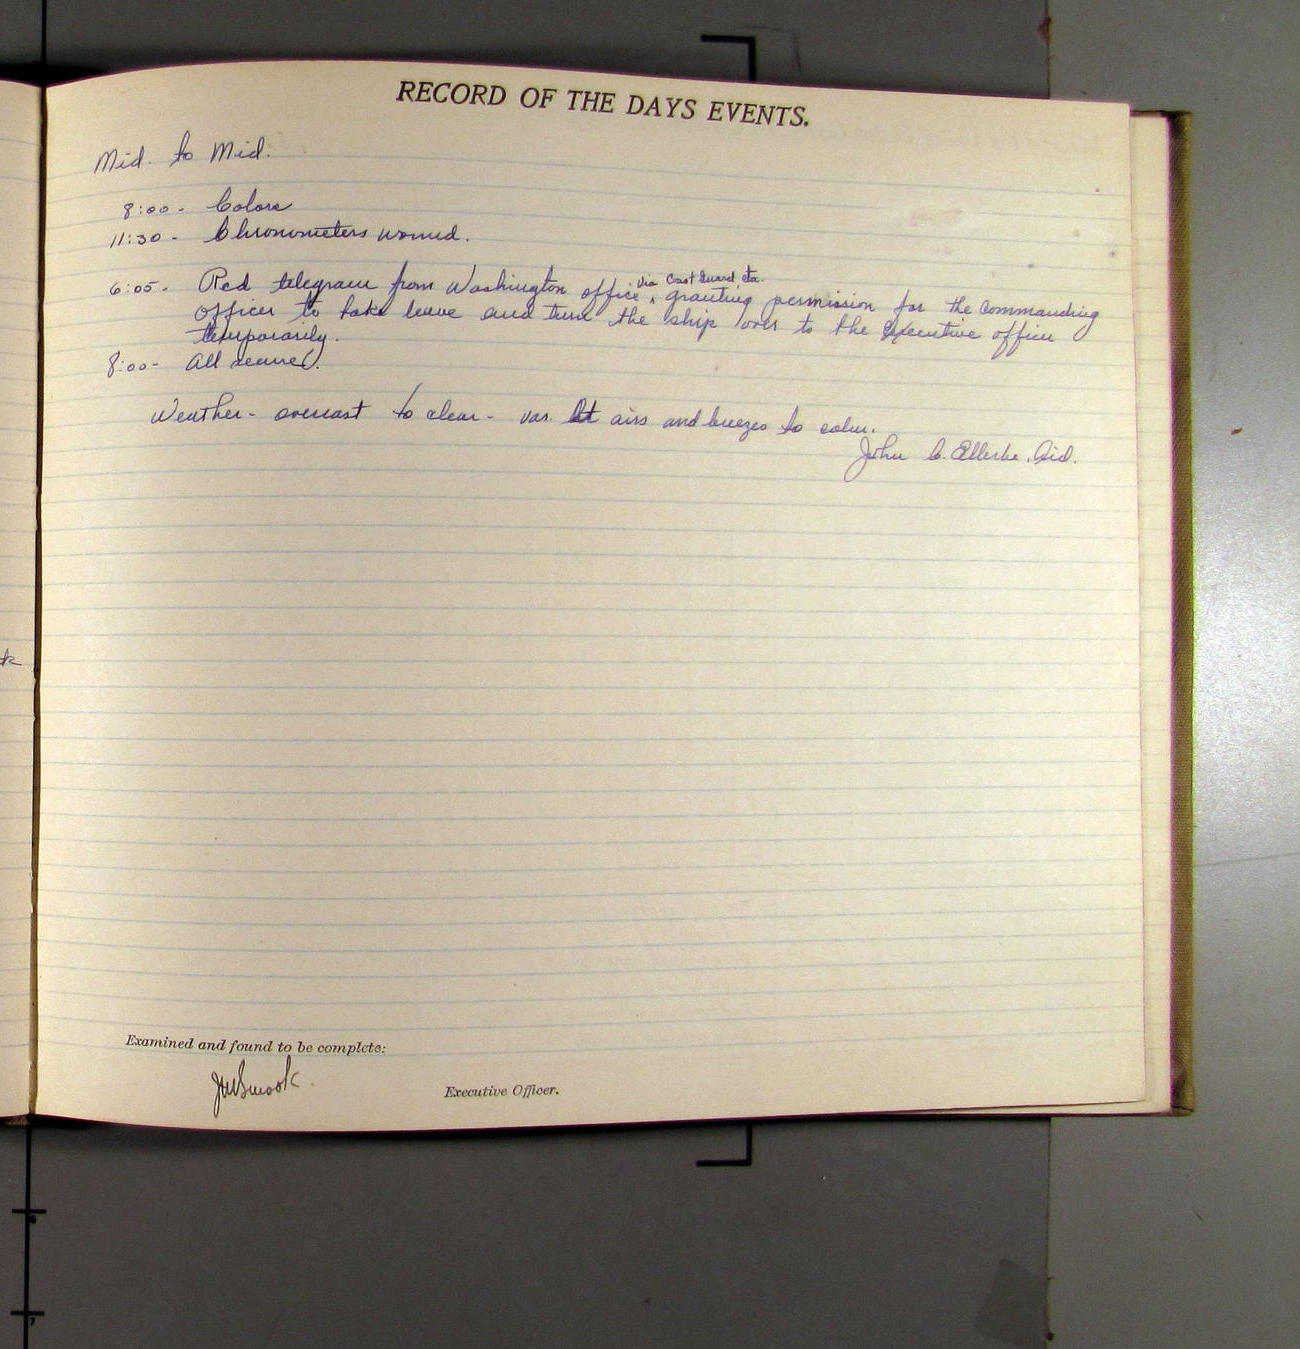 RECORD OF THE DAYS EVENTS.
Mid. to Mid.
8:00 - Colors
11:30 - Chronometers wound.
6:05 - Rcd telegram from Washington office ‸ via Coast Guard sta. granting permission for the commanding
officer to take leave and turn the ship over to the Executive officer
temporarily.
8:00 - All secure.
Weather - overcast to clear - var. lt airs and breezes to calm.
John C. Ellerbe, Aid.
k
Examined and found to be complete:
JMSmook.
Executive Officer.
6
7